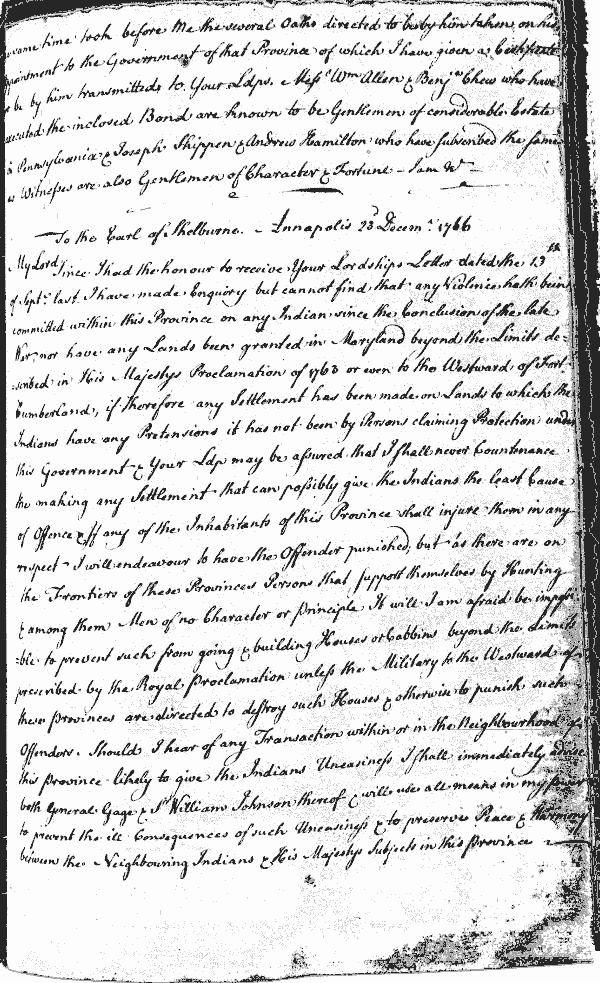 same time took before Me the several Oaths directed to be by him taken on his
appointment to the Government of that Province of which I have given a Certificate
to be by him transmitted to Your Ldps. Messrs Wm Allen & Benjn Chew who have
executed the inclosed Bond are known to be Gentlemen of considerable Estate
in Pennsylvania & Joseph Shippen & Andrew Hamilton who have subscribed the same
as Witnesses are also Gentlemen of Character & Fortune - I am &c -
To the Earl of Shelburne. - Annapolis 23d Decemr 1766
My Lord, Since I had the honour to receive Your Lordships Letter dated the 13th
of Septr last I have made Enquiry but cannot find that any Violence hath been
committed within this Province on any Indian since the Conclusion of the late
War, nor have any Lands been granted in Maryland beyond the Limits de-
scribed in His Majestys Proclamation of 1763 or even to the Westward of Fort-
Cumberland, if therefore any Settlement has been made on Lands to which the
Indians have any Pretensions it has not been by Persons claiming Protection under
this Government & Your Ldp may be assured that I shall never Countenance
the making any Settlement that can possibly give the Indians the least Cause
of Offence & If any of the Inhabitants of this Province shall injure them in any
respect I will endeavour to have the Offender punished, but as there are on
the Frontiers of these Provinces Persons that support themselves by Hunting
& among them Men of no Character or principle It will I am afraid be impossi
=ble to prevent such from going & building Houses or Cabbins beyond the Limits
prescribed by the Royal Proclamation unless the Military to the Westward of
these Provinces are directed to destroy such Houses & otherwise to punish such
Offenders. Should I hear of any Transaction within or in the Neighbourhood of
this Province likely to give the Indians Uneasiness I shall immediately advise
both General Gage & Sr William Johnson thereof & will use all means in my power
to prevent the ill Consequences of such Uneasiness & to preserve Peace & Harmony
between the Neighbouring Indians & His Majestys Subjects in this Province